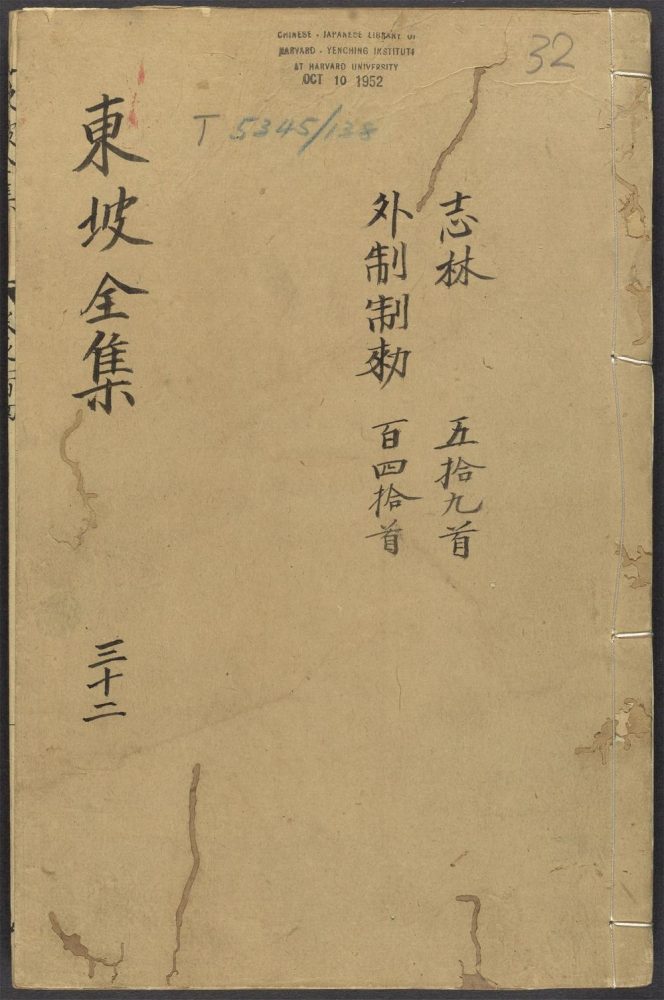 CHINESE - JAPANESE LIBRARY OF
HARVARD - YENCHING INSTITUTE
AT HARVARD UNIVERSITY
OCT 10 1952
32
T 5345/138
志林 五拾九首
外制制勑 百四拾首
東坡全集 三十二